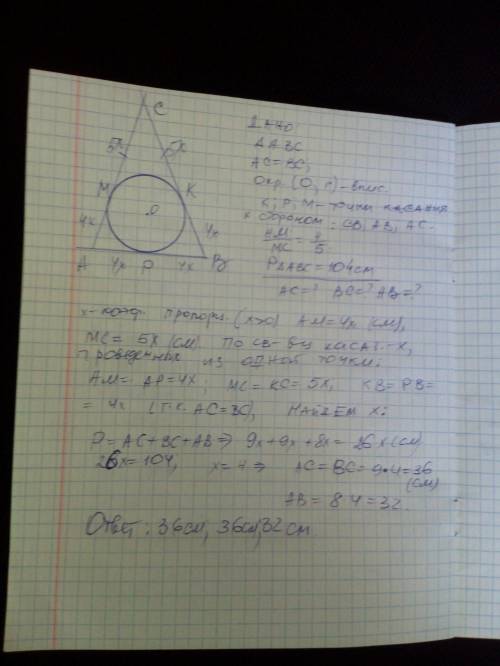 C
5x
5x
M
K
O
4x
4x
A
4x
P
4x
B
Дано
△ABC
AC=BC;
Окр. (O, r)-впис.
K; P; M- точки касания
к сторонам: CB; AB; AC.
AM/MC = 4/5
P△ABC = 104см
AC=? BC=? AB=?
x-коэф. пропорц. (x>0) AM=4x (см),
MC= 5x (см). По св-ву касат.-х,
проведенных из одной точки:
AM= AP=4x; MC=KC=5x, KB=PB=
= 4x (т.к. AC=BC), Найдем x:
P=AC+BC+AB⇒ 9x+9x+8x= 26x(см)
26x=104, x=4⇒ AC=BC=9·4=36
(см)
AB = 8·4=32.
Ответ: 36см, 36см, 32см.